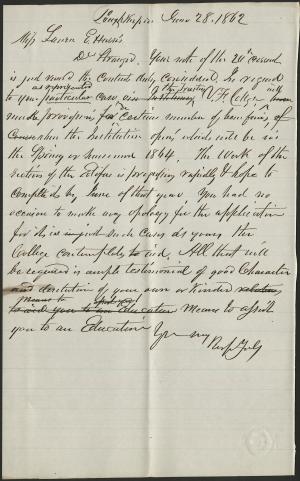 Poughkeepsie June 28. 1862
Miss Laura E. Harris
Dr Stranger. Your note of the 20th
is just recd the Contents duly considered. In regard
as represented
to your particular case
V. F. College will
made provisions for a Certain number of
the Institution open, which will be in
the Spring or Summer 1864. The Work of the
erection of the College is progressing rapidly & hope to
complete by June of that year. You had no
occasion to make any apology for the application
for it is in just such Cases as yours the
College contemplates to aid. All that will
be required is ample testimonial of good Character
and destitution of your own or Kindred relatives
means to
to aid you to an Education Means to assist
you to an Education
Yrs my
Resp Fully